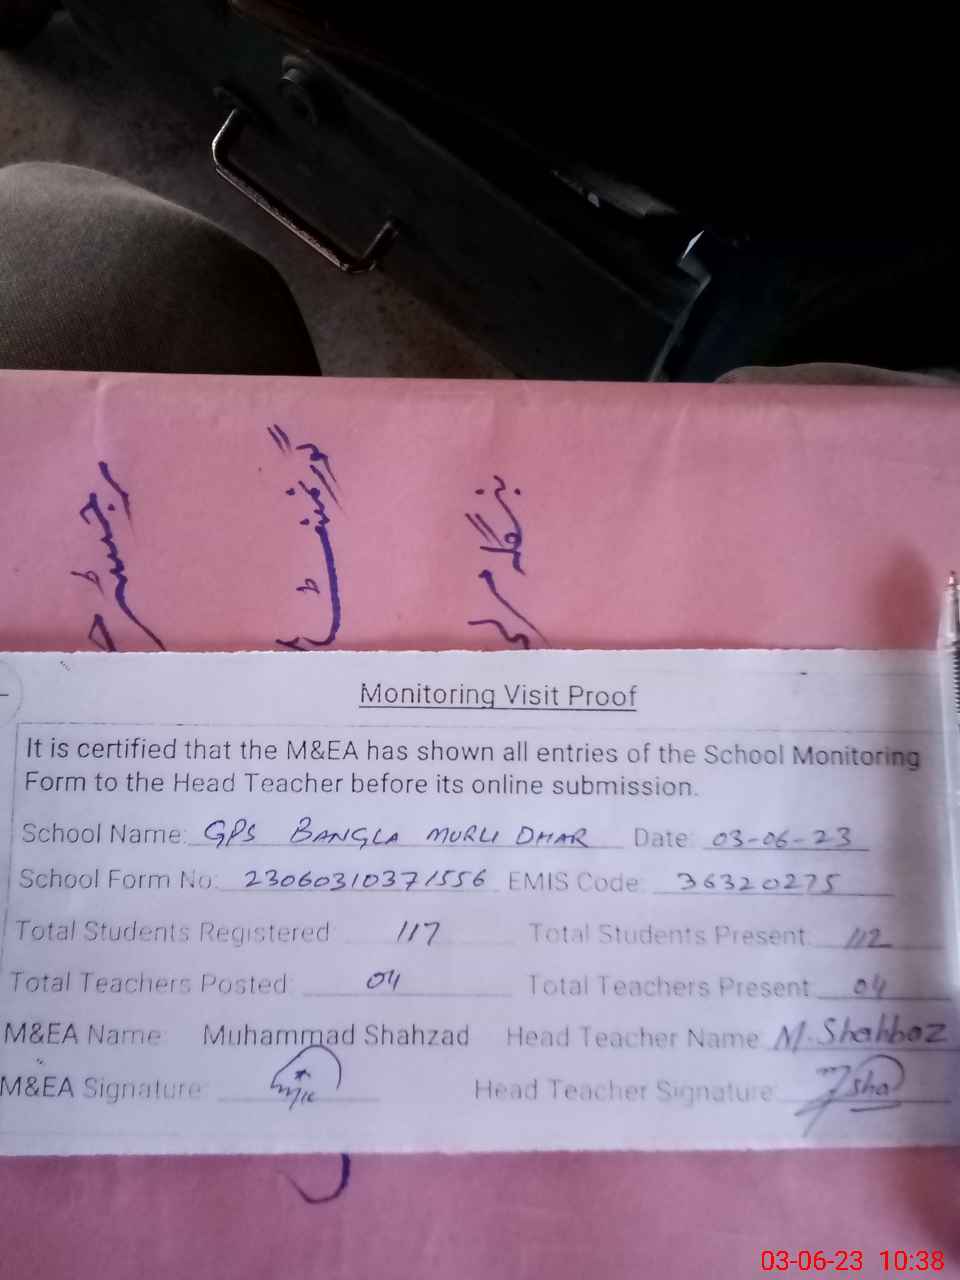 رجسٹر
گورنمنٹ
بنگلہ
Monitoring Visit Proof
It is certified that the M&EA has shown all entries of the School Monitoring
Form to the Head Teacher before its online submission.
School Name: GPS BANGLA MURLI DHAR Date: 03-06-23
School Form No: 23060310371556 EMIS Code: 36320275
Total Students Registered 117 Total Students Present 112
Total Teachers Posted: 04 Total Teachers Present 04
M&EA Name Muhammad Shahzad Head Teacher Name M. Shahbaz
M&EA Signature: Head Teacher Signature:
03-06-23 10:38